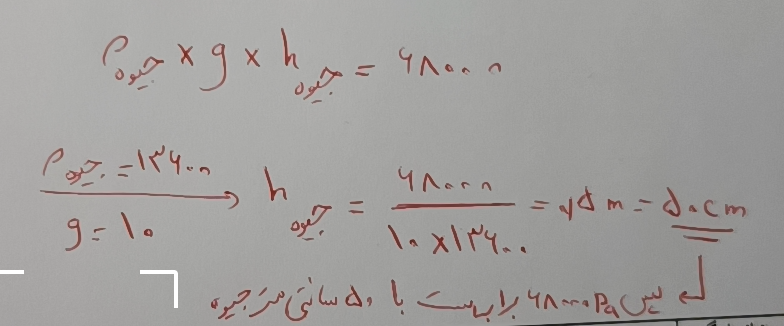 ρ جیوه × g × h جیوه = ۶۸۰۰۰
ρ جیوه = ۱۳۶۰۰
g = ۱۰
h جیوه = ۶۸۰۰۰ / ۱۰ × ۱۳۶۰۰ = ۰٫۵ m = ۵۰ cm
پس ۶۸۰۰۰ Pa برابرست با ۵۰ سانتی متر جیوه